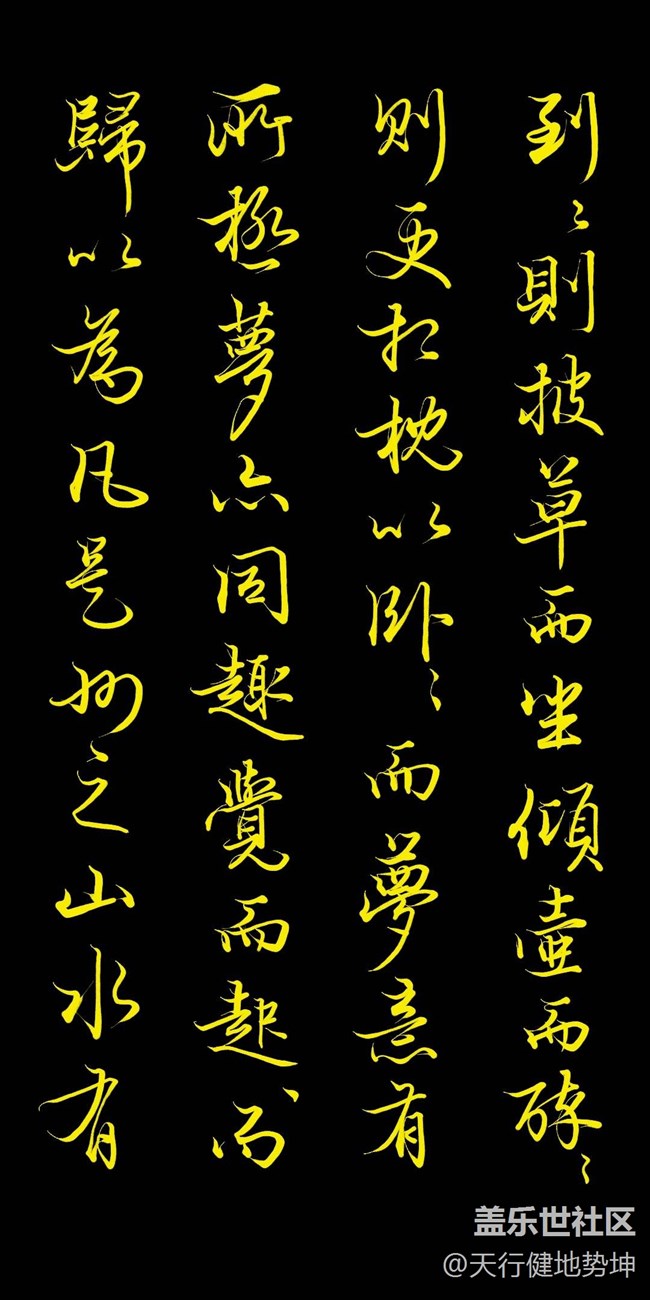 到〻則披草而坐傾壺而醉〻
则更相枕以卧〻而夢意有
所極夢亦同趣覺而起〻而
歸以為凡是州之山水有
盖乐世社区
@天行健地势坤